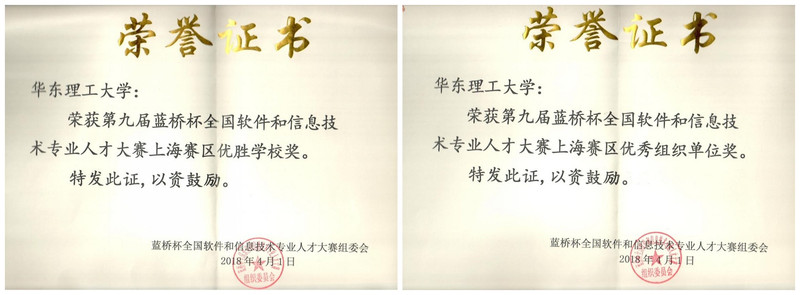 荣誉证书
华东理工大学：
荣获第九届蓝桥杯全国软件和信息技
术专业人才大赛上海赛区优胜学校奖。
特发此证，以资鼓励。
蓝桥杯全国软件和信息技术专业人才大赛组委会
2018年4月1日
组织委员会
荣誉证书
华东理工大学：
荣获第九届蓝桥杯全国软件和信息技
术专业人才大赛上海赛区优秀组织单位奖。
特发此证，以资鼓励。
蓝桥杯全国软件和信息技术专业人才大赛组委会
2018年4月1日
组织委员会